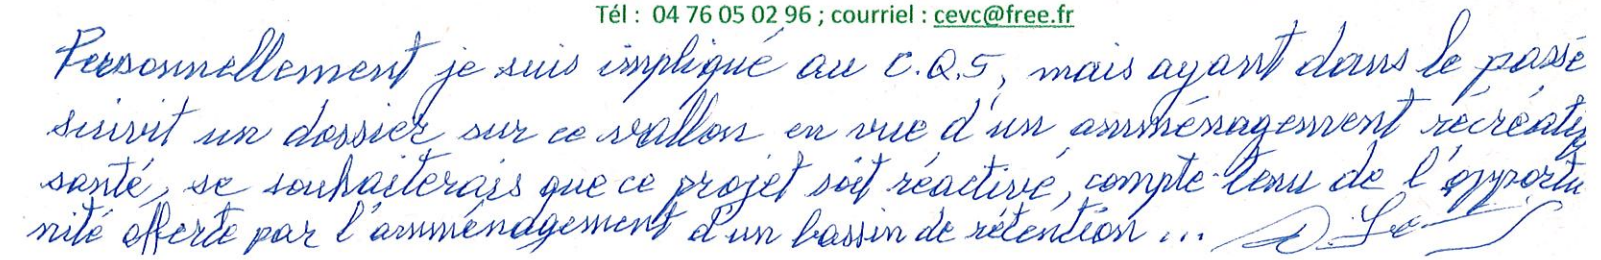 Tél : 04 76 05 02 96 ; courriel : cevc@free.fr
Personnellement je suis impliqué au C.Q.5, mais ayant dans le passé
suivit un dossier sur ce vallon en vue d'un amménagement récréatif
santé, je souhaiterais que ce projet soit réactivé, compte-tenu de l'opportu
nité offerte par l'amménagement d'un bassin de rétention...